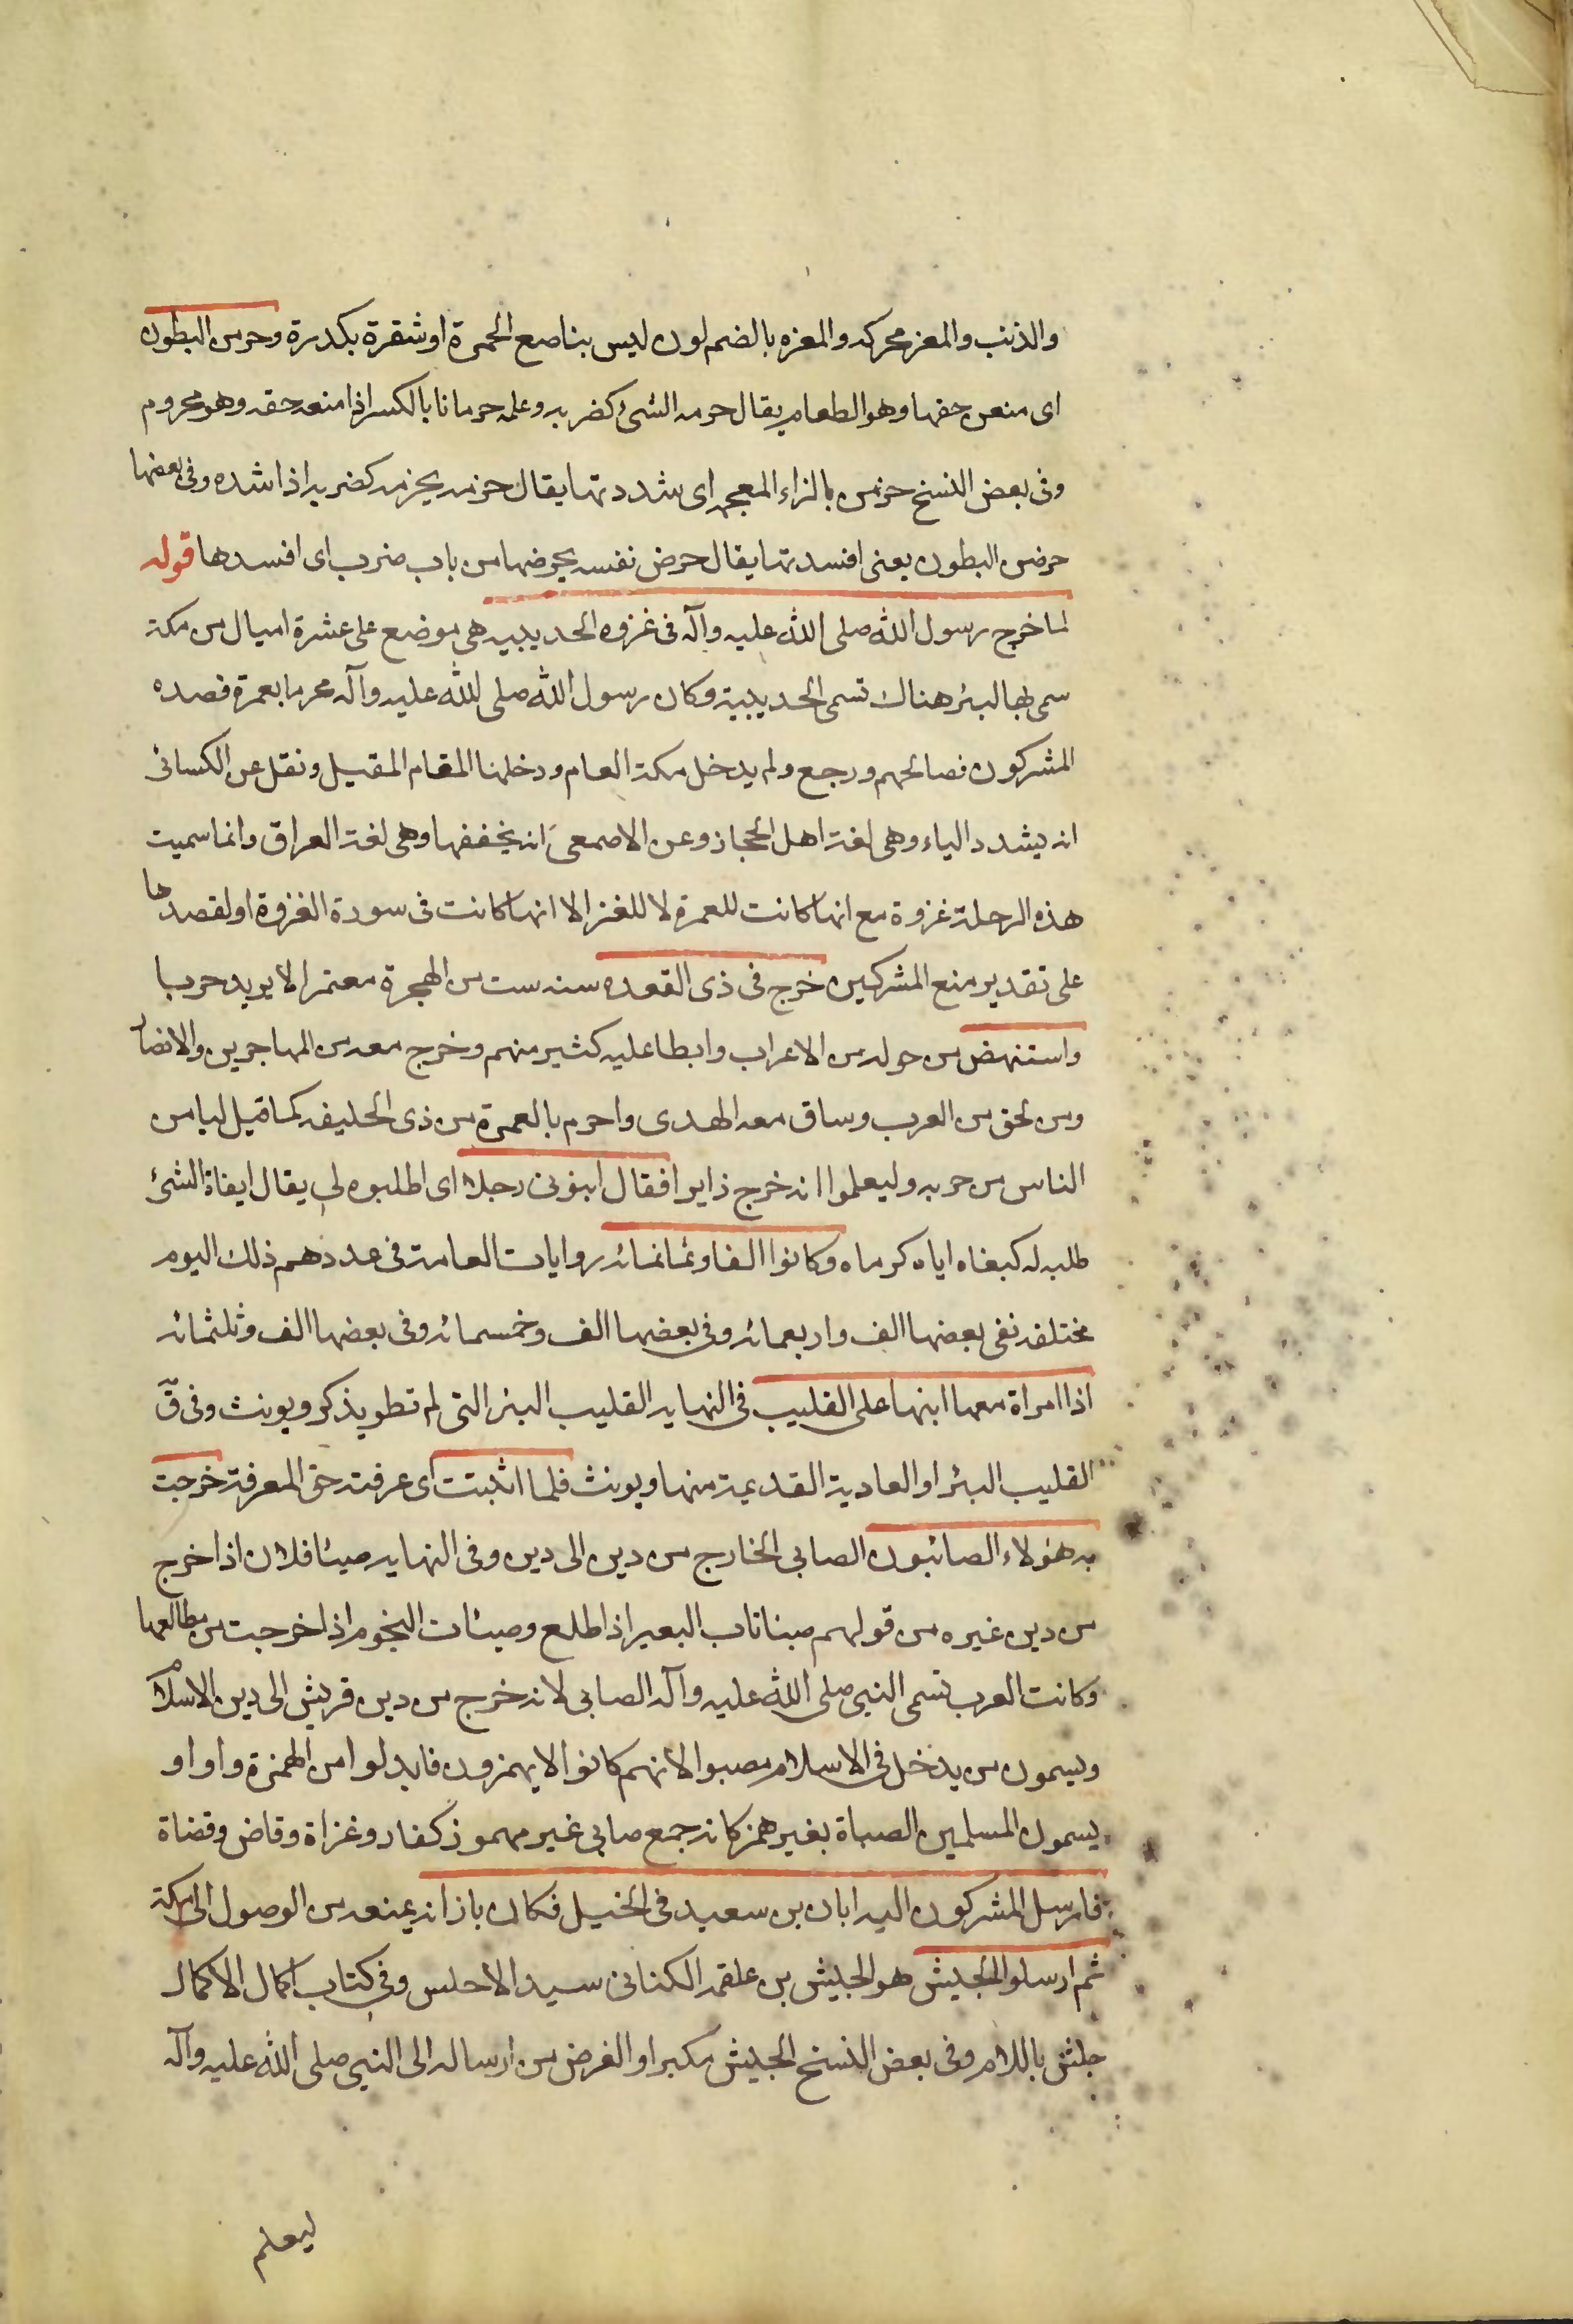 والذنب والمغز محركه والمغزه بالضم لون ليس بناصع الحمرة او شقرة بكدرة وحرمن البطون
اى منعن حقها وهو الطعام يقال حرمه الشئ كضربه وعلمه حرمانا بالكسر اذا منعه حقه وهو محروم
وفى بعض النسخ حزمن بالزاء المعجمه اى شددتها يقال حزمه يحزمه كضربه اذا شده وفى بعضها
حرضن البطون يعنى افسدتها يقال حرض نفسه يحرضها من باب ضرب اى افسدها قوله
لما خرج رسول الله صلى الله عليه وآله فى غزوه الحديبيه هى موضع على عشرة اميال من مكة
سمى بها لبئر هناك تسمى الحديبية وكان رسول الله صلى الله عليه وآله محرما بعمرة فصده
المشركون فصالحهم ورجع ولم يدخل مكة العام ودخلها المقام المقبل ونقل عن الكسائى
انه يشدد الياء وهى لغة اهل الحجاز وعن الاصمعى انه يخففها وهى لغة العراق وانما سميت
هذه الرحلة غزوة مع انها كانت للعمرة لا للغزا الا انها كانت فى سورة الغزوة او لقصدها
على تقدير منع المشركين خرج فى ذى القعده سنه ست من الهجرة معتمرا لا يريد حربا
واستنهض من حوله من الاعراب وابطا عليه كثير منهم وخرج معه من المهاجرين والانصار
ومن لحق من العرب وساق معه الهدى واحرم بالعمرة من ذى الحليفه كما قيل ليامن
الناس من حربه وليعلموا انه خرج زايرا فقال ابغونى رجلا اى اطلبوه لى يقال ابغاة الشئ
طلبه له كبغاه اياه كرماه وكانوا الفا وثمانمائه روايات العامة فى عددهم ذلك اليوم
مختلفه نفى بعضها الف واربعمائه وفى بعضها الف وخمسمائه وفى بعضها الف وثلثمائه
اذا امراة معها ابنها على القليب فى النهايه القليب البئر التى لم تطو يذكر ويونث وفى ق
القليب البئر او العادية القديمة منها ويونث فلما اثبتت اى عرفته حق المعرفة خرجت
به هؤلاء الصائبون الصابى الخارج من دين الى دين وفى النهايه صبئا فلان اذا خرج
من دين غيره من قولهم صبنا ناب البعير اذا طلع وصبئات النجوم اذا خرجت من مطالعها
وكانت العرب تسمى النبى صلى الله عليه وآله الصابى لانه خرج من دين قريش الى دين الاسلام
ويسمون من يدخل فى الاسلام مصبوا لانهم كانوا لا يهمزون فابدلوا من الهمزة واوا و
يسمون المسلمين الصباة بغير همز كانه جمع صابى غير مهموز كفار وغزاة وقاض وقضاة
فارسل المشركون اليه ابان بن سعيد فى الخيل فكان بازائه يمنعه من الوصول الى مكة
ثم ارسلوا الجليش هو الجليش بن علقمه الكنانى سيد الاحلس وفى كتاب اكمال الاكمال
جلش باللام وفى بعض النسخ الجليش مكبرا والغرض من ارساله الى النبى صلى الله عليه وآله
ليعلم